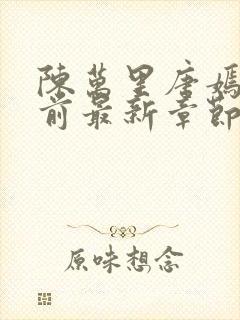 陳萬里唐嫣
前最新章節
原味想念